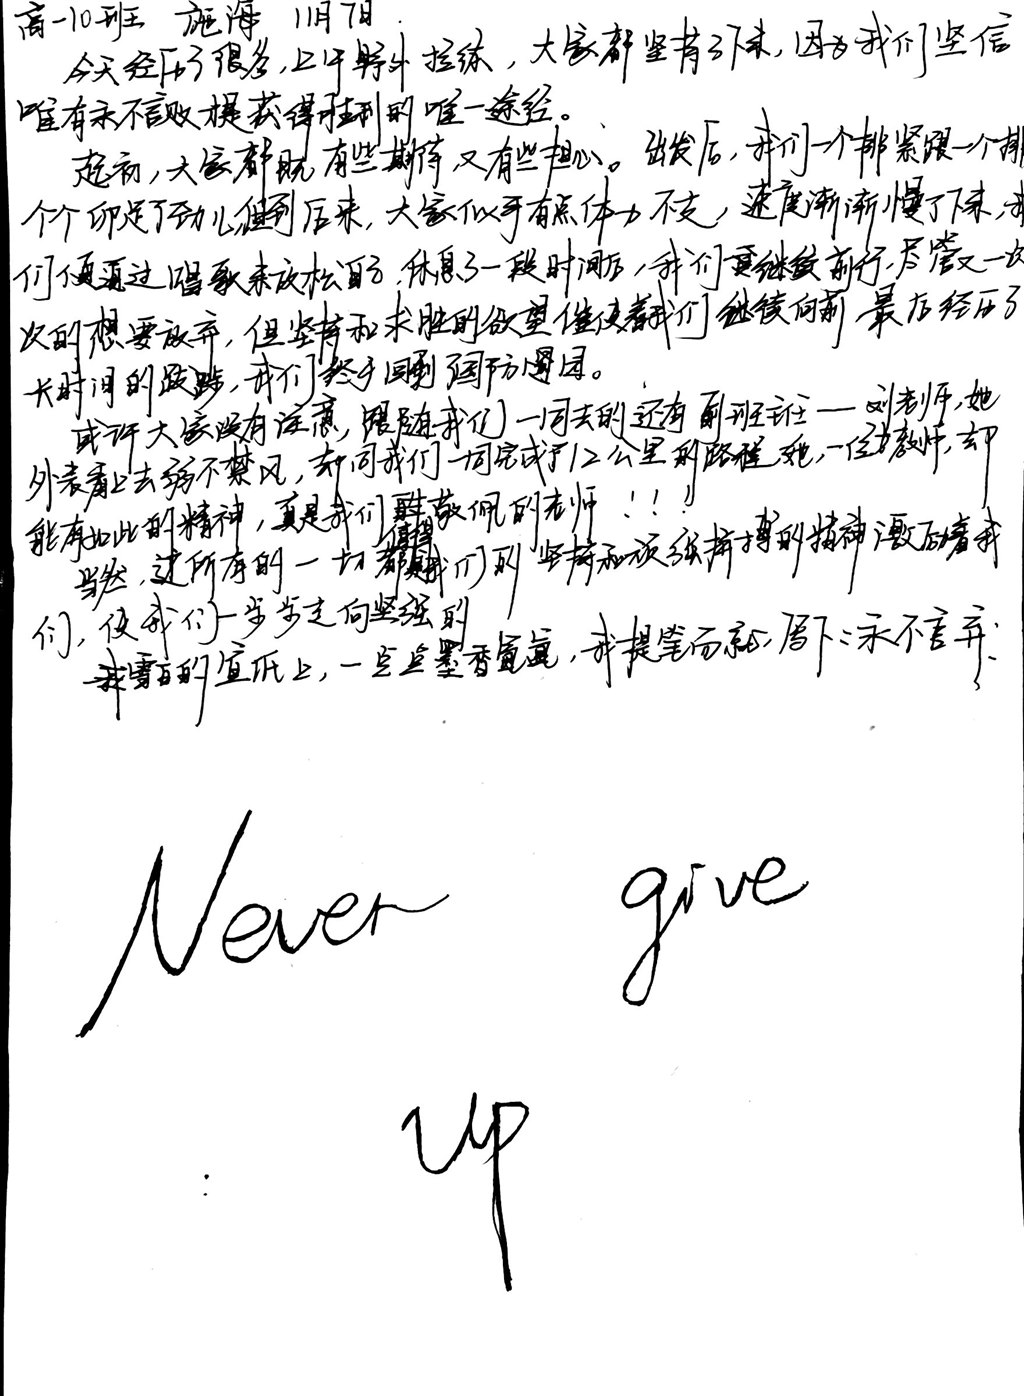 高一10班 施海 11月7日
今天经历了很多,上午野外拉练,大家都坚持了下来,因为我们坚信
唯有永不言败才是获得胜利的唯一途径。
起初,大家都既有些期待又有些担心。出发后,我们一个排紧跟一个排
个个卯足了劲儿但到后来,大家似乎有点体力不支,速度渐渐慢了下来,我
们便通过唱歌来放松自己,休息了一段时间后,我们再继续前行,尽管又一次
次的想要放弃,但坚持和求胜的欲望催使着我们继续向前 最后经历了
长时间的跋涉,我们终于回到国防園。
或许大家没有注意,跟随我们一同去的还有副班主任——刘老师,她
外表看上去弱不禁风,却同我们一同完成了12公里的路程 她,一位教师,却
能有如此的精神,真是我们敬佩的老师!!!
当然,这所有的一切都值得我们的坚持和顽强拼搏的精神激励着我
们,使我们一步步走向坚强的
雪白的宣纸上,一点点墨香氤氲,我提笔而就,写下:永不言弃:
Never give
up